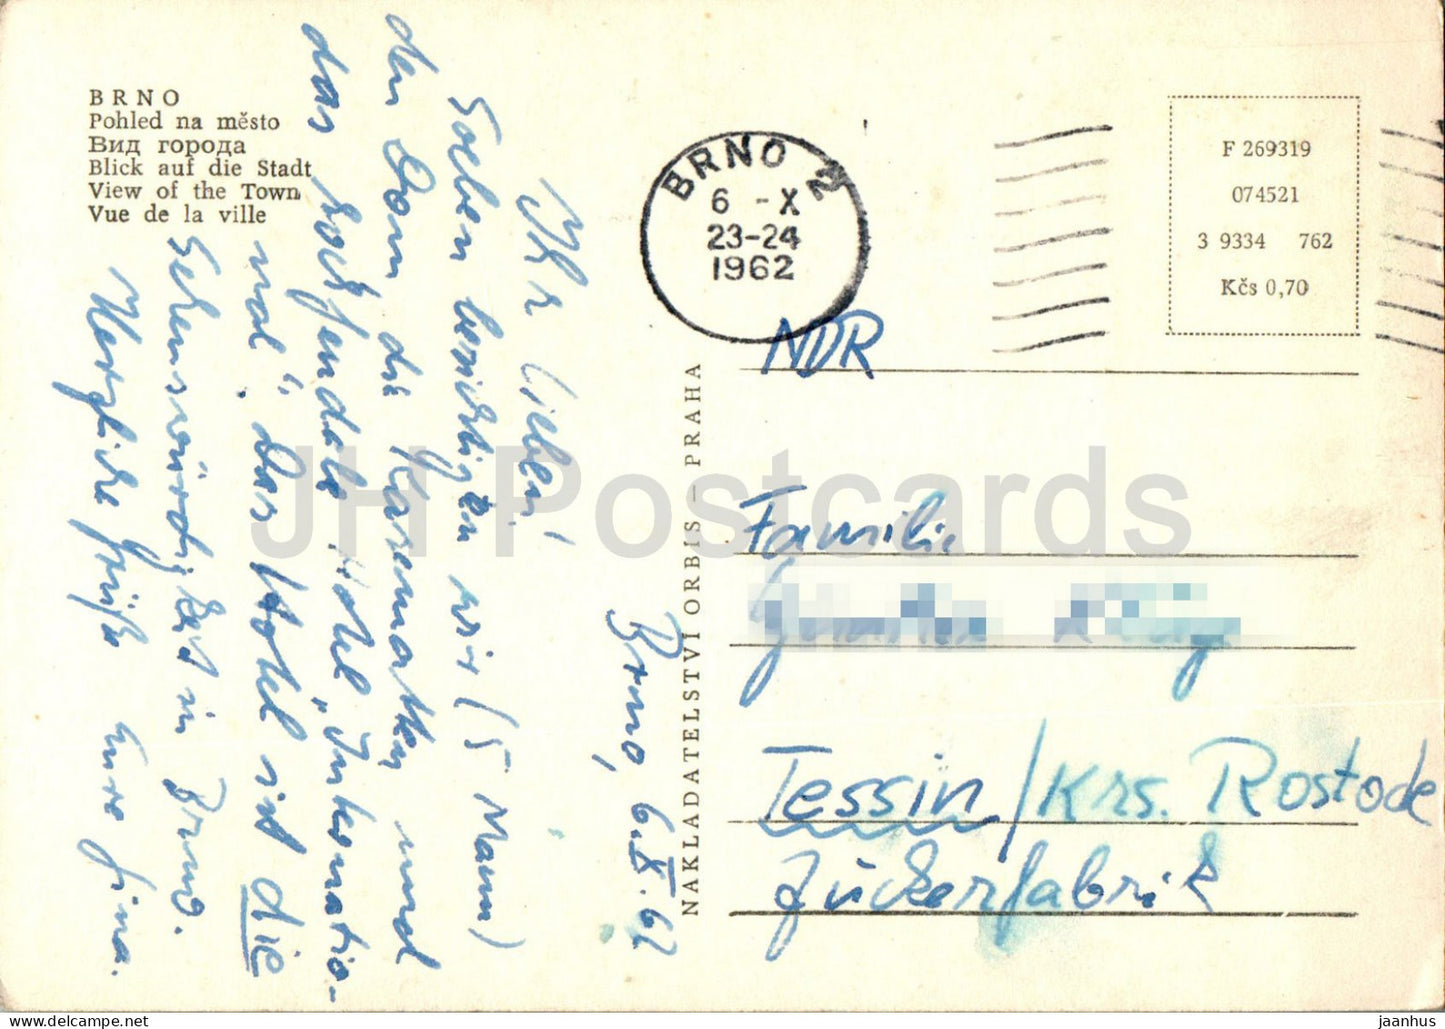 BRNO
Pohled na město
Вид города
Blick auf die Stadt
View of the Town
Vue de la ville
Brno, 6.X.62
Ihr Lieben!
Soeben besichtigen wir (5 Mann)
den Dom, die Kasematten und
das hochfeudale Hotel „Internatio-
nal“. Das Hotel ist die
Sehenswürdigkeit in Brno.
Herzliche Grüße Eure Gina.
NAKLADATELSTVÍ ORBIS – PRAHA
BRNO 2
6 -X
23-24
1962
F 269319
074521
3 9334 762
Kčs 0,70
NDR
Familie
Tessin/Krs. Rostock
Zuckerfabrik
JH Postcards
jaanhus @ delcampe.net